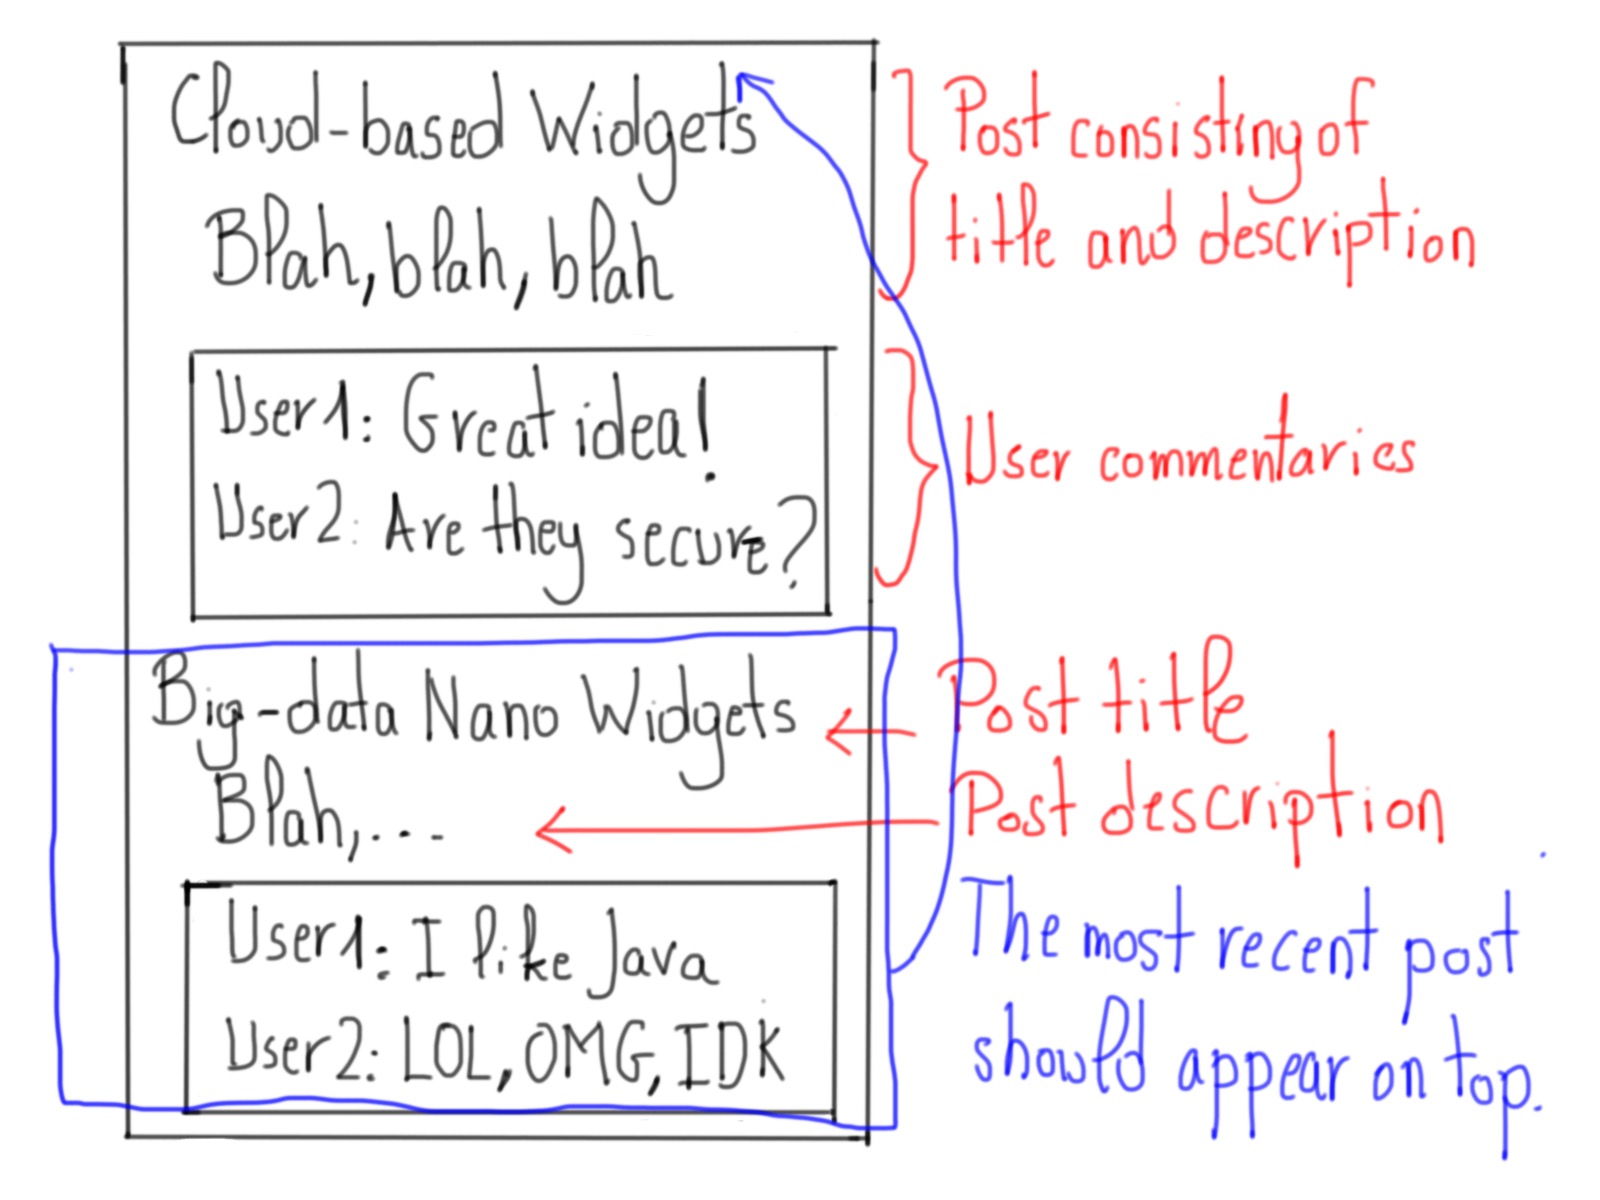 Cloud-based Widgets
Blah, blah, blah
User1: Great idea!
User2: Are they secure?
Big-data Nano Widgets
Blah,...
User1: I like Java
User2: LOL, OMG, IDK
Post consisting of
title and description
User commentaries
Post title
Post description
The most recent post
should appear on top.